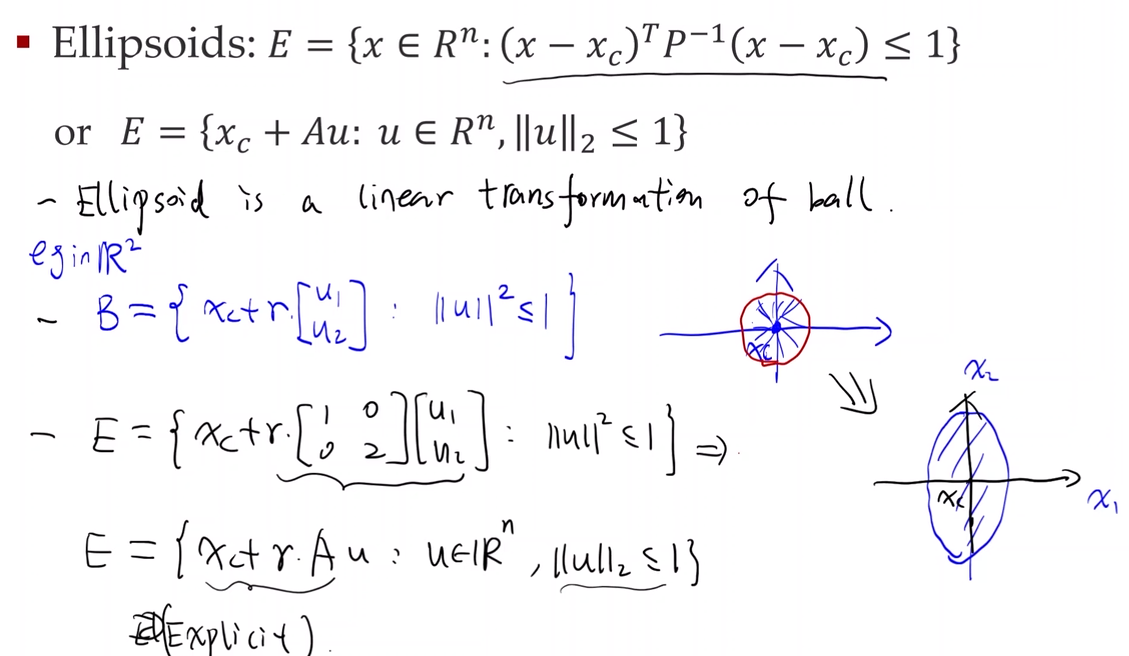 ▪ Ellipsoids: E = {x ∈ Rⁿ: (x − x_c)ᵀP⁻¹(x − x_c) ≤ 1}
or E = {x_c + Au: u ∈ Rⁿ, ‖u‖₂ ≤ 1}
~ Ellipsoid is a linear transformation of ball.
eg in ℝ²
~ B = { x_c + r·[u₁ u₂] : ‖u‖² ≤ 1 }
x_c
x₂
– E = { x_c + r·[1 0 0 2][u₁ u₂] : ‖u‖² ≤ 1 } ⇒
x_c
x₁
E = { x_c + r·A u : u ∈ ℝⁿ, ‖u‖₂ ≤ 1}
(Explicit).